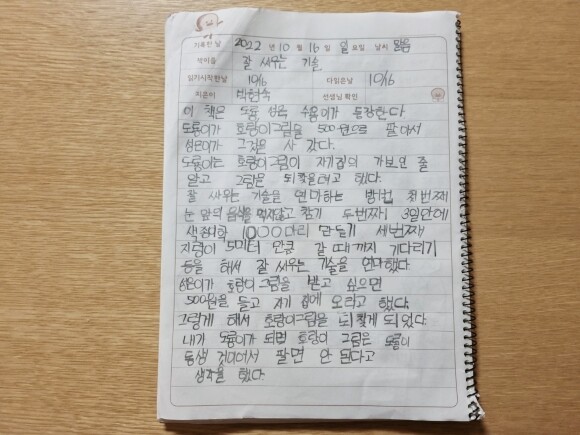 기록한 날 2022 년 10 월 16 일 일 요일 날씨 맑음
책이름 잘 싸우는 기술
읽기시작한날 10/6 다읽은날 10/6
지은이 선생님 확인
이 책은 도룡 성욱 수용이가 등장한다
도룡이가 호랑이그림을 500원으로 팔아서
성욱이가 그것을 사 갔다.
도룡이는 호랑이그림이 자기집의 가보인 줄
알고 그림을 되찾을려고 했다.
잘 싸우는 기술을 연마하는 방법 첫번째
눈 앞의 음식을 먹지않고 참기 두번째 3일만에
색종이학 1000마리 만들기 세번째
지렁이 5미터 만큼 갈 때까지 기다리기
등을 해서 잘 싸우는 기술을 연마했다
성욱이가 호랑이그림을 받고 싶으면
500원을 들고 자기 집에 오라고 했다.
그렇게 해서 호랑이그림을 되찾게 되었다.
내가 도룡이가 되면 호랑이 그림은 도룡이
동생 것이어서 팔면 안 된다고
생각을 했다.